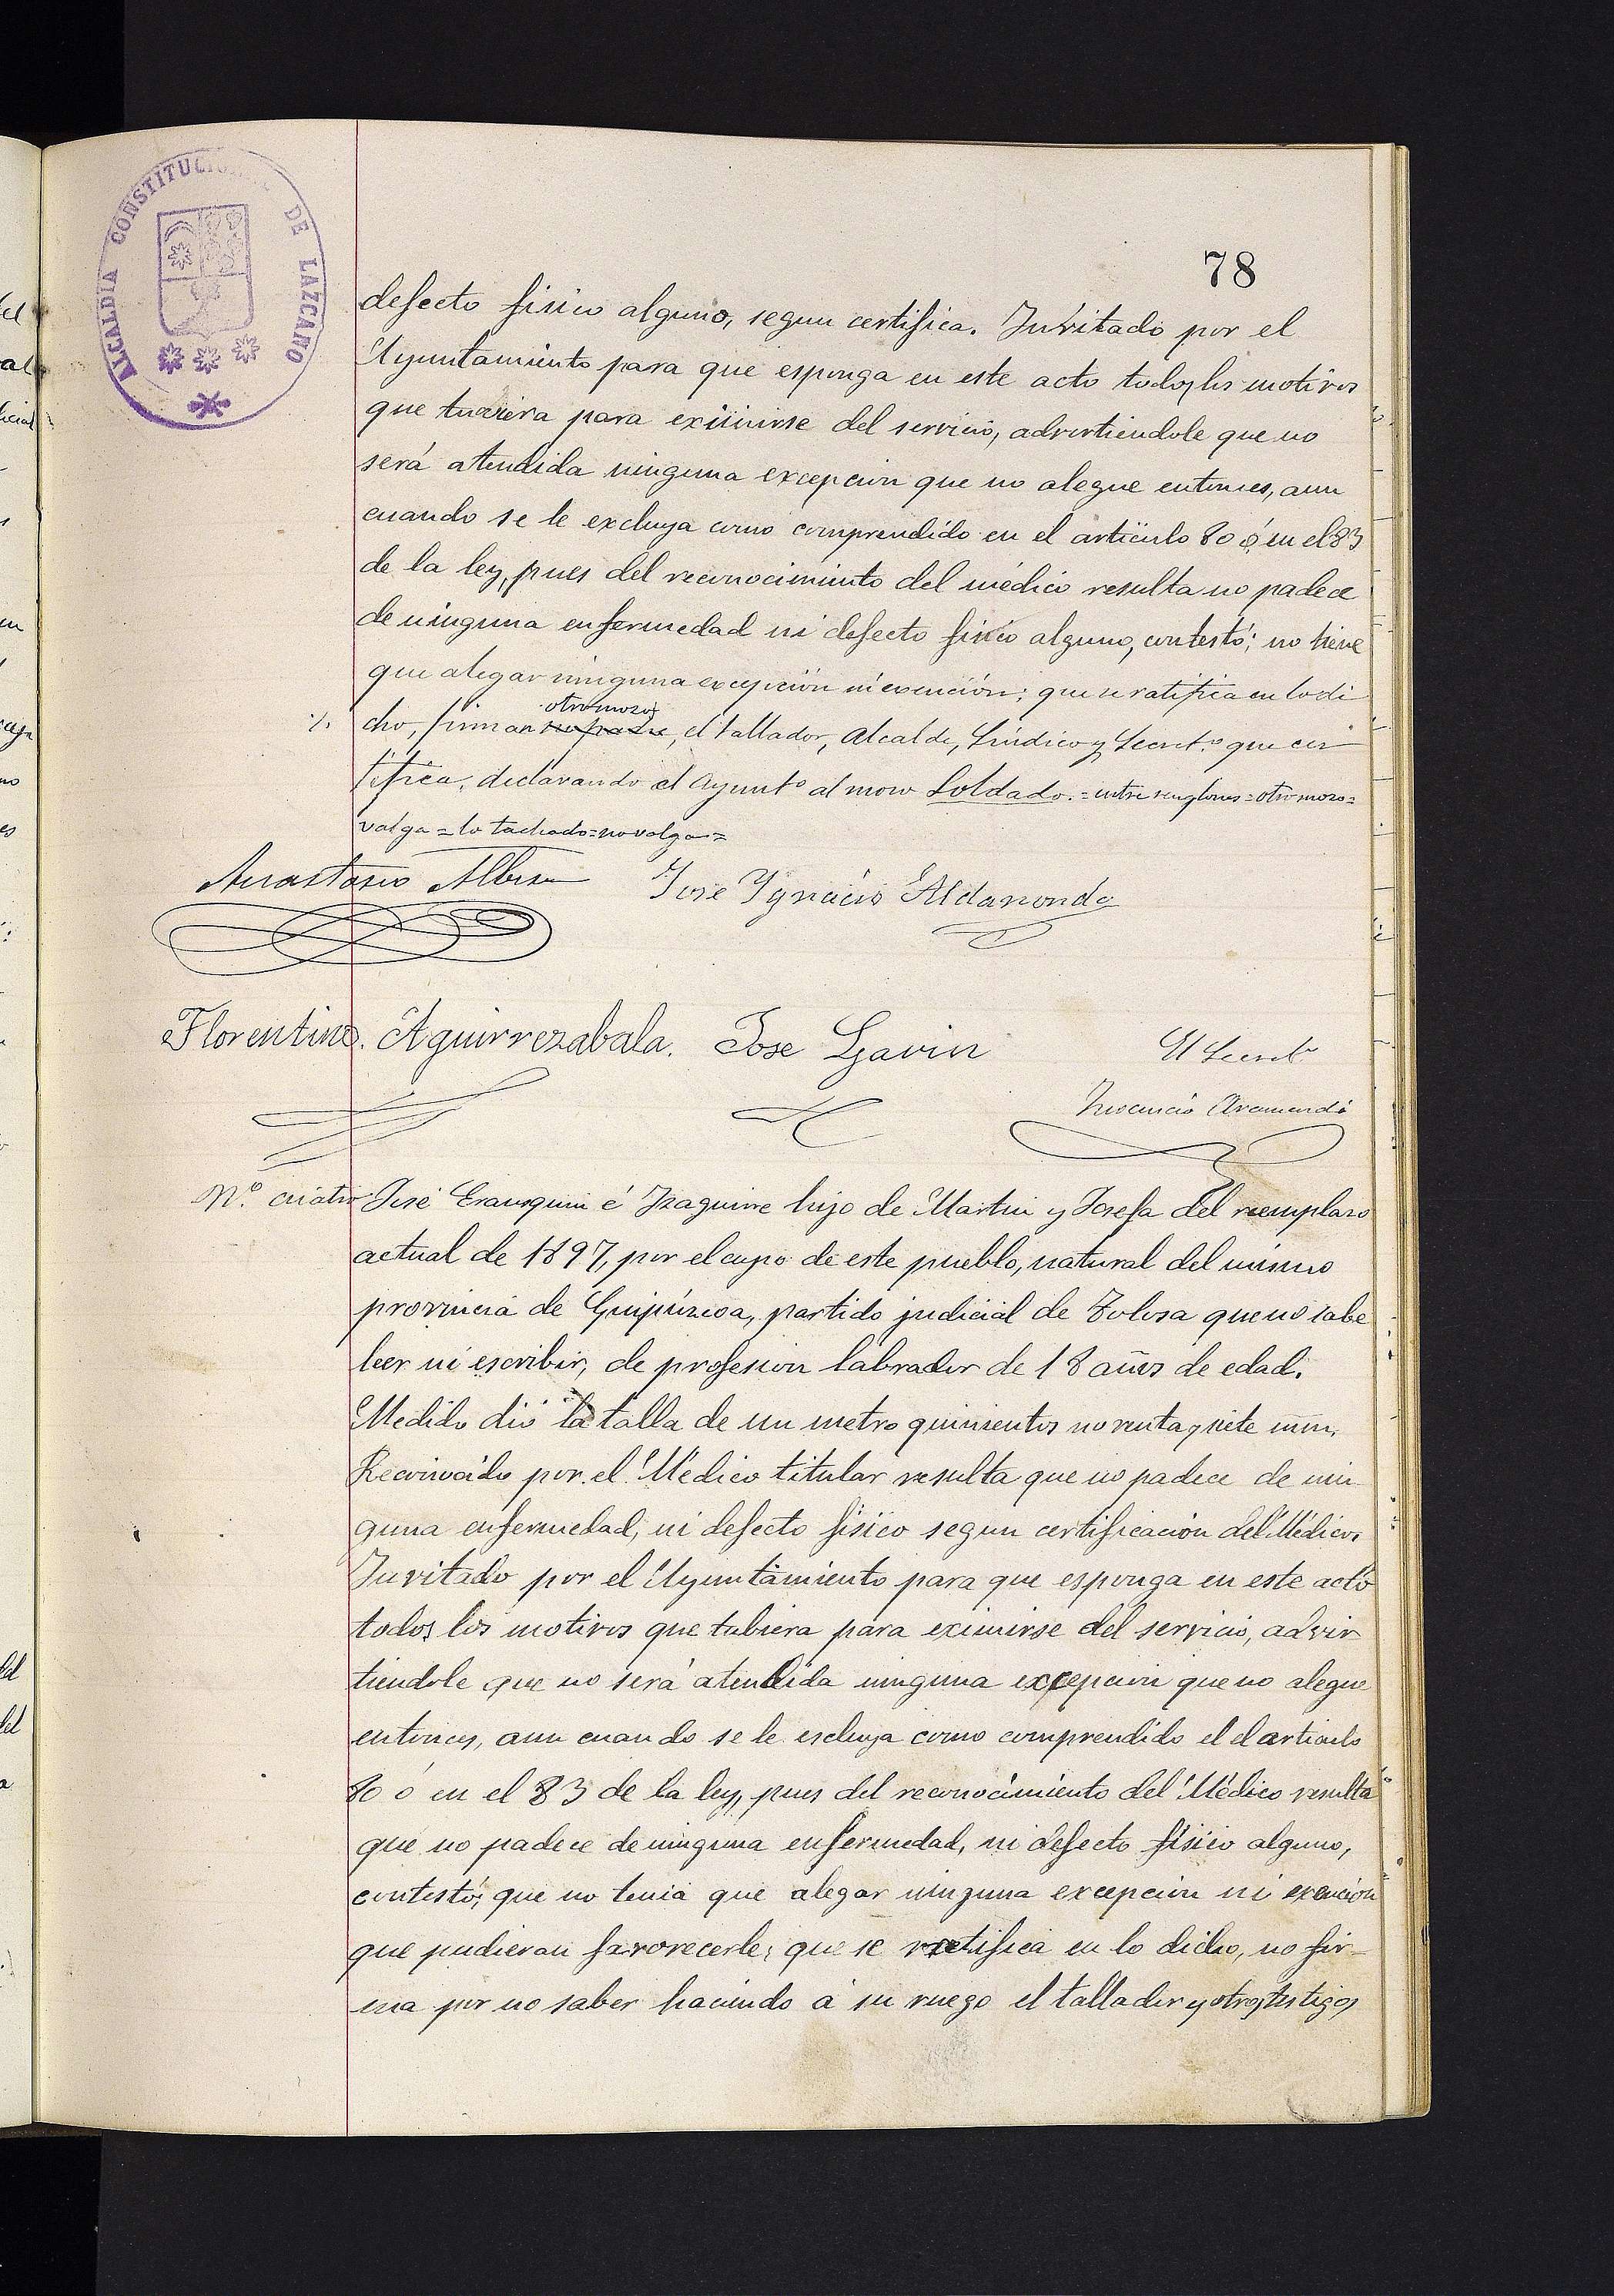 ALCALDIA CONSTITUCIONAL DE LAZCANO
78
defecto fisico alguno, segun certifica. Invitado por el
Ayuntamiento para que esponga en este acto todos los motivos
que tuviera para eximirse del servicio, advirtiendole que no
será atendida ninguna excepcion que no alegue entonces, aun
cuando se le excluya como comprendido en el articulo 80 ó en el 83
de la ley, pues del reconocimiento del médico resulta no padece
de ninguna enfermedad ni defecto fisico alguno, contestó; no tiene
que alegar ninguna excepción ni exención; que se ratifica en lo di
otro mozo
cho, firman su padre, el tallador, Alcalde, Síndico y Secret.º que cer
tifica, declarando el Ayuntº al mozo Soldado.=entre renglones=otro mozo=
valga=lo tachado=no valga=
Anastasio Albisu Jose Ygnacio Aldanondo
Florentino Aguirrezabala. Jose Gavin El Secretº
Inocencio Aramendi
Nº. cuatro José Erausquin é Izaguirre hijo de Martin y Josefa del reemplazo
actual de 1897, por el cupo de este pueblo, natural del mismo
provincia de Guipúzcoa, partido judicial de Tolosa que no sabe
leer ni escribir, de profesion labrador de 18 años de edad.
Medido dió la talla de un metro quinientos noventa y siete mm.
Reconocido por el Médico titular resulta que no padece de nin
guna enfermedad, ni defecto fisico segun certificación del Médico.
Invitado por el Ayuntamiento para que esponga en este acto
todos los motivos que tubiera para eximirse del servicio, advir
tiendole que no será atendida ninguna excepcion que no alegue
entonces, aun cuando se le escluya como comprendido el el articulo
80 ó en el 83 de la ley, pues del reconocimiento del Médico resulta
que no padece de ninguna enfermedad, ni defecto fisico alguno,
contestó; que no tenia que alegar ninguna excepcion ni exencion
que pudieran favorecerle; que se ratifica en lo dicho, no fir-
ma por no saber haciendo á su ruego el tallador y otros testigos